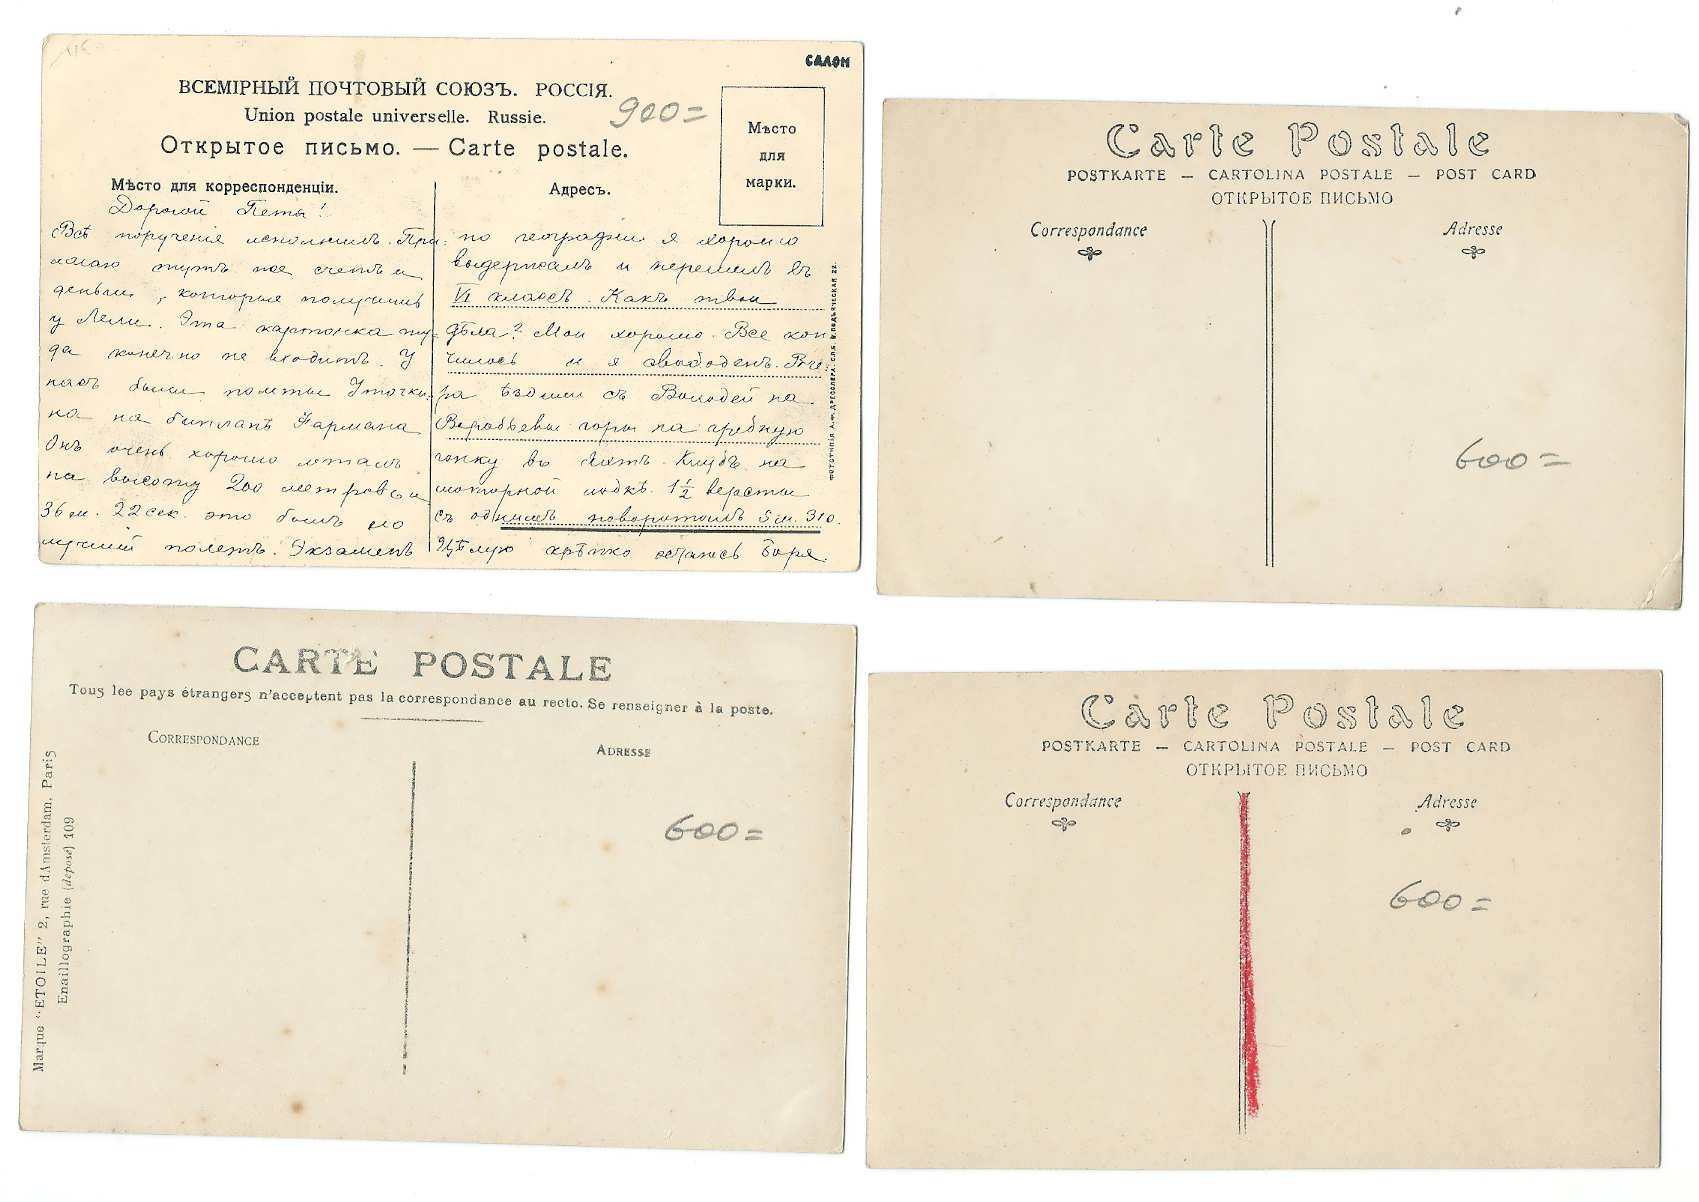 САЛОН
ВСЕМІРНЫЙ ПОЧТОВЫЙ СОЮЗЪ. РОССІЯ.
Union postale universelle. Russie.
900=
Открытое письмо. — Carte postale.
Мѣсто
для
марки.
Мѣсто для корреспонденціи.
Адресъ.
Дорогой Петя!
Всѣ порученія исполнилъ. При-
лагаю тутъ же счетъ и
деньги, которые получишь
у Лели. Эта карточка ту-
да конечно не входитъ. У
насъ были полеты Уточки-
на на бипланѣ Фармана
Онъ очень хорошо леталъ
на высоту 200 метровъ и
36 м. 22 сек. это былъ его
лучшій полетъ. Экзаменъ
по географіи я хорошо
выдержалъ и перешелъ въ
VI классъ. Какъ твои
дѣла? Мои хорошо. Все кон-
чилось и я свободенъ. Вче-
ра ѣздили съ Володей на
Воробьевы горы на гребную
гонку въ Яхтъ-Клубъ на
моторной лодкѣ. 1½ версты
съ однимъ поворотомъ 5 м. 31 с.
Цѣлую крѣпко остаюсь Боря.
ФОТОТИПІЯ А.Ф. ДРЕССЛЕРА. С.П.Б. В. ПОДЬЯЧЕСКАЯ 22.
Carte Postale
POSTKARTE — CARTOLINA POSTALE — POST CARD
ОТКРЫТОЕ ПИСЬМО
Correspondance
Adresse
600=
CARTE POSTALE
Tous lee pays étrangers n'acceptent pas la correspondance au recto. Se renseigner à la poste.
CORRESPONDANCE
ADRESSE
600=
Marque "ETOILE" 2, rue d'Amsterdam, Paris
Enaillographie (deposé) 109
Carte Postale
POSTKARTE — CARTOLINA POSTALE — POST CARD
ОТКРЫТОЕ ПИСЬМО
Correspondance
Adresse
600=